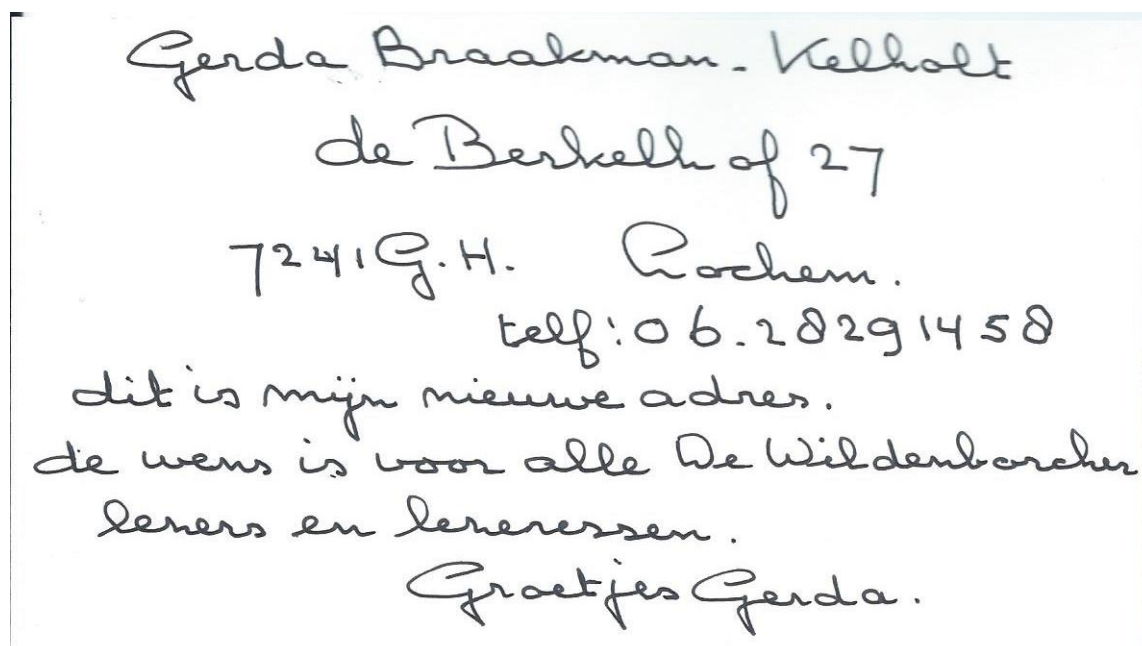 Gerda Braakman-Velholt
de Berkelhof 27
7241 G.H. Lochem.
telf: 06.28291458
dit is mijn nieuwe adres.
de wens is voor alle De Wildenborcher
lezers en lezeressen.
Groetjes Gerda.